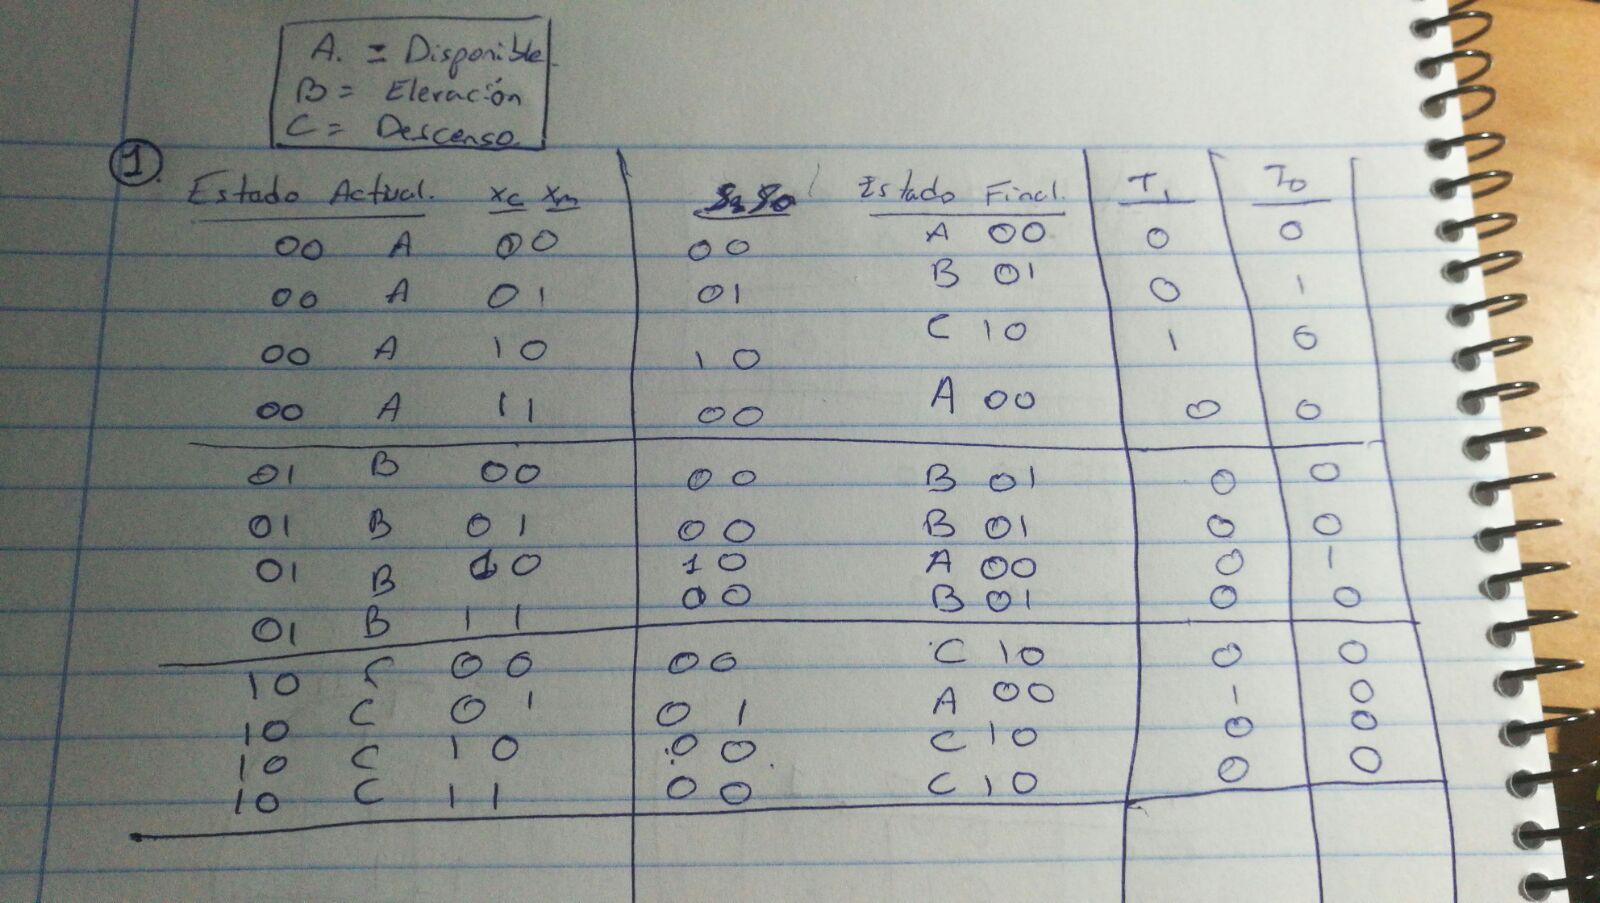 A. = Disponible.
B = Elevación
C = Descenso.
1.
Estado Actual. xc xm Estado Final. T1 T0
00 A 00 00 A 00 0 0
00 A 01 01 B 01 0 1
00 A 10 10 C 10 1 0
00 A 11 00 A 00 0 0
01 B 00 00 B 01 0 0
01 B 01 00 B 01 0 0
01 B 10 10 A 00 0 1
01 B 11 00 B 01 0 0
10 C 00 00 C 10 0 0
10 C 01 01 A 00 1 0
10 C 10 00 C 10 0 0
10 C 11 00 C 10 0 0